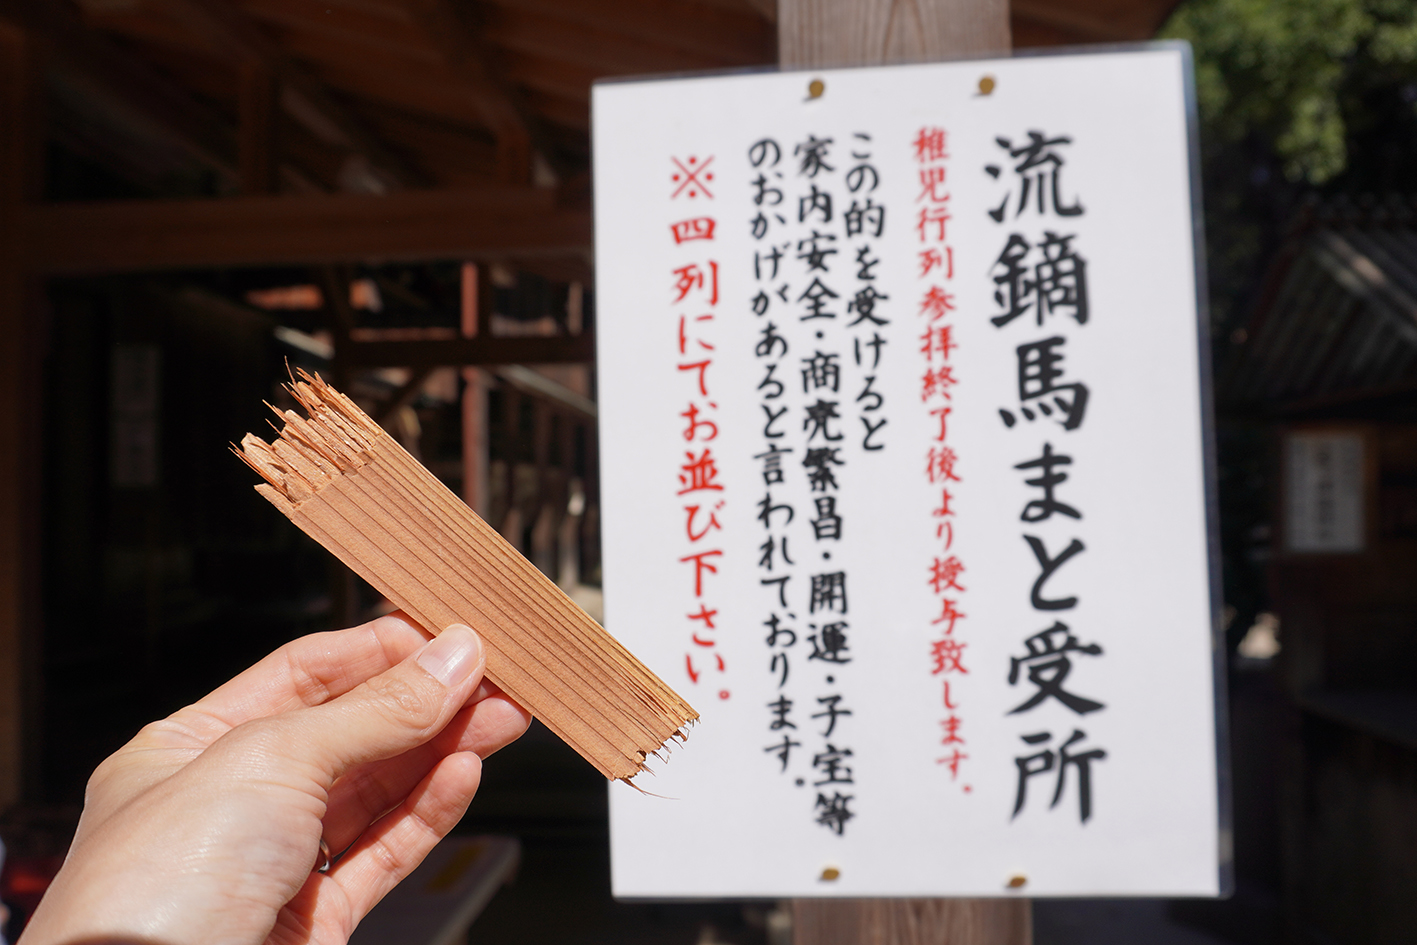 流鏑馬まと受所
稚児行列参拝終了後より授与致します。
この的を受けると
家内安全・商売繁昌・開運・子宝等
のおかげがあると言われております。
※四列にてお並び下さい。